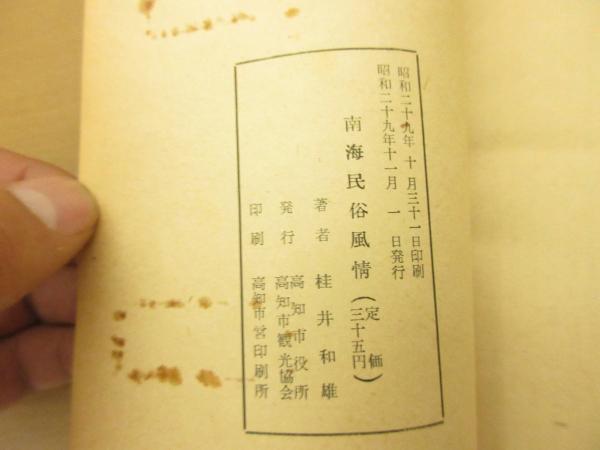 昭和二十九年 十 月三十一日印刷
昭和二十九年十一月 一 日発行
南海民俗風情(定価三十五円)
著者 桂井和雄
発行 高知市役所
高知市観光協会
印刷 高知市営印刷所